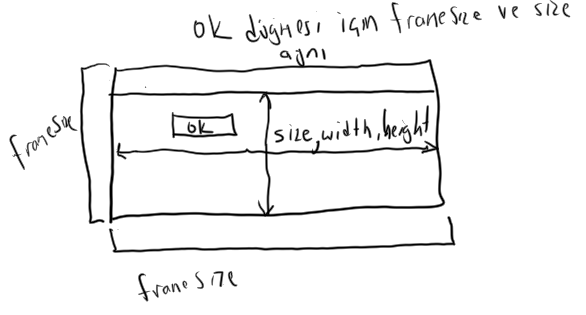 OK düğmesi için framesize ve size
aynı
framesize
OK
size, width, height
framesize